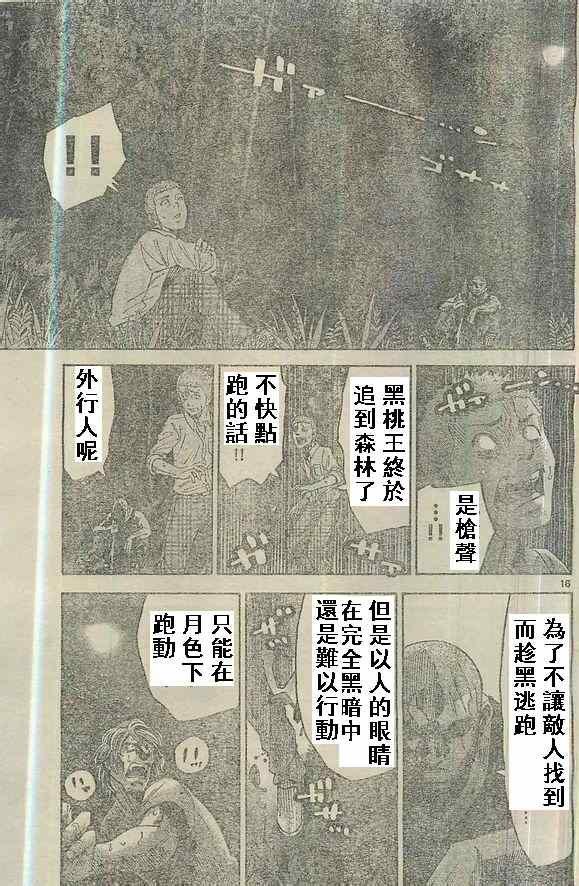 !!
ガァ
ガサガサ
是槍聲
…!!
黑桃王終於
追到森林了
不快點
跑的話!!
外行人呢
16
為了不讓敵人找到
而趁黑逃跑
…
但是以人的眼睛
在完全黑暗中
還是難以行動
只能在
月色下
跑動